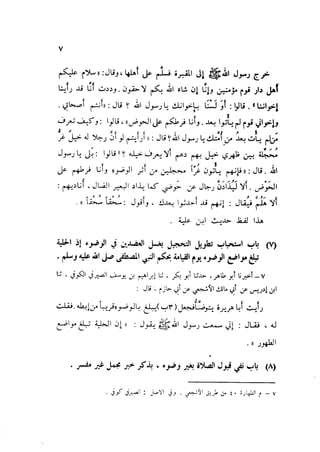 ٧
خرج رسول الله ﷺ إلى المقبرة فسلم على أهلها، وقال: «سلام عليكم
أهل دار قوم مؤمنين وإنا إن شاء الله بكم لاحقون. وددت أنا قد رأينا
إخواننا». قالوا: أو لسنا بإخوانك يا رسول الله؟ قال: «أنتم أصحابي.
وإخواني قوم لم يأتوا بعد. وأنا فرطكم على الحوض»، قالوا: وكيف تعرف
من لم يأت بعد من أمتك يا رسول الله؟ قال: «أرأيتم لو أن رجلا له خيل غر
محجلة بين ظهري خيل بهم دهم ألا يعرف خيله؟» قالوا: بلى يا رسول
الله. قال: «فإنهم يأتون غرا محجلين من أثر الوضوء وأنا فرطهم على
الحوض. ألا ليذادن رجال عن حوضي كما يذاد البعير الضال، أناديهم:
ألا هلم فيقال: إنهم قد أحدثوا بعدك، وأقول: سحقا سحقا».
هذا لفظ حديث ابن علية.
(٧) باب استحباب تطويل التحجيل بغسل العضدين في الوضوء إذ الحلية
تبلغ مواضع الوضوء يوم القيامة بحكم النبي المصطفى صلى الله عليه وسلم.
٧ – أخبرنا أبو طاهر، حدثنا أبو بكر، نا إبراهيم بن يوسف الصيرفي الكوفي، نا
ابن إدريس عن أبي مالك الأشجعي عن أبي حازم، قال:
رأيت أبا هريرة يتوضأ فجعل (٣ب) يبلغ بالوضوء قريبا من إبطه. فقلت
له، فقال: إني سمعت رسول الله ﷺ يقول: «إن الحلية تبلغ مواضع
الطهور».
(٨) باب نفي قبول الصلاة بغير وضوء، بذكر خبر مجمل غير مفسر.
٧ – م الطهارة ٤٠ من طريق الأشجعي. وفي الأصل: الصيرفي كوفي.